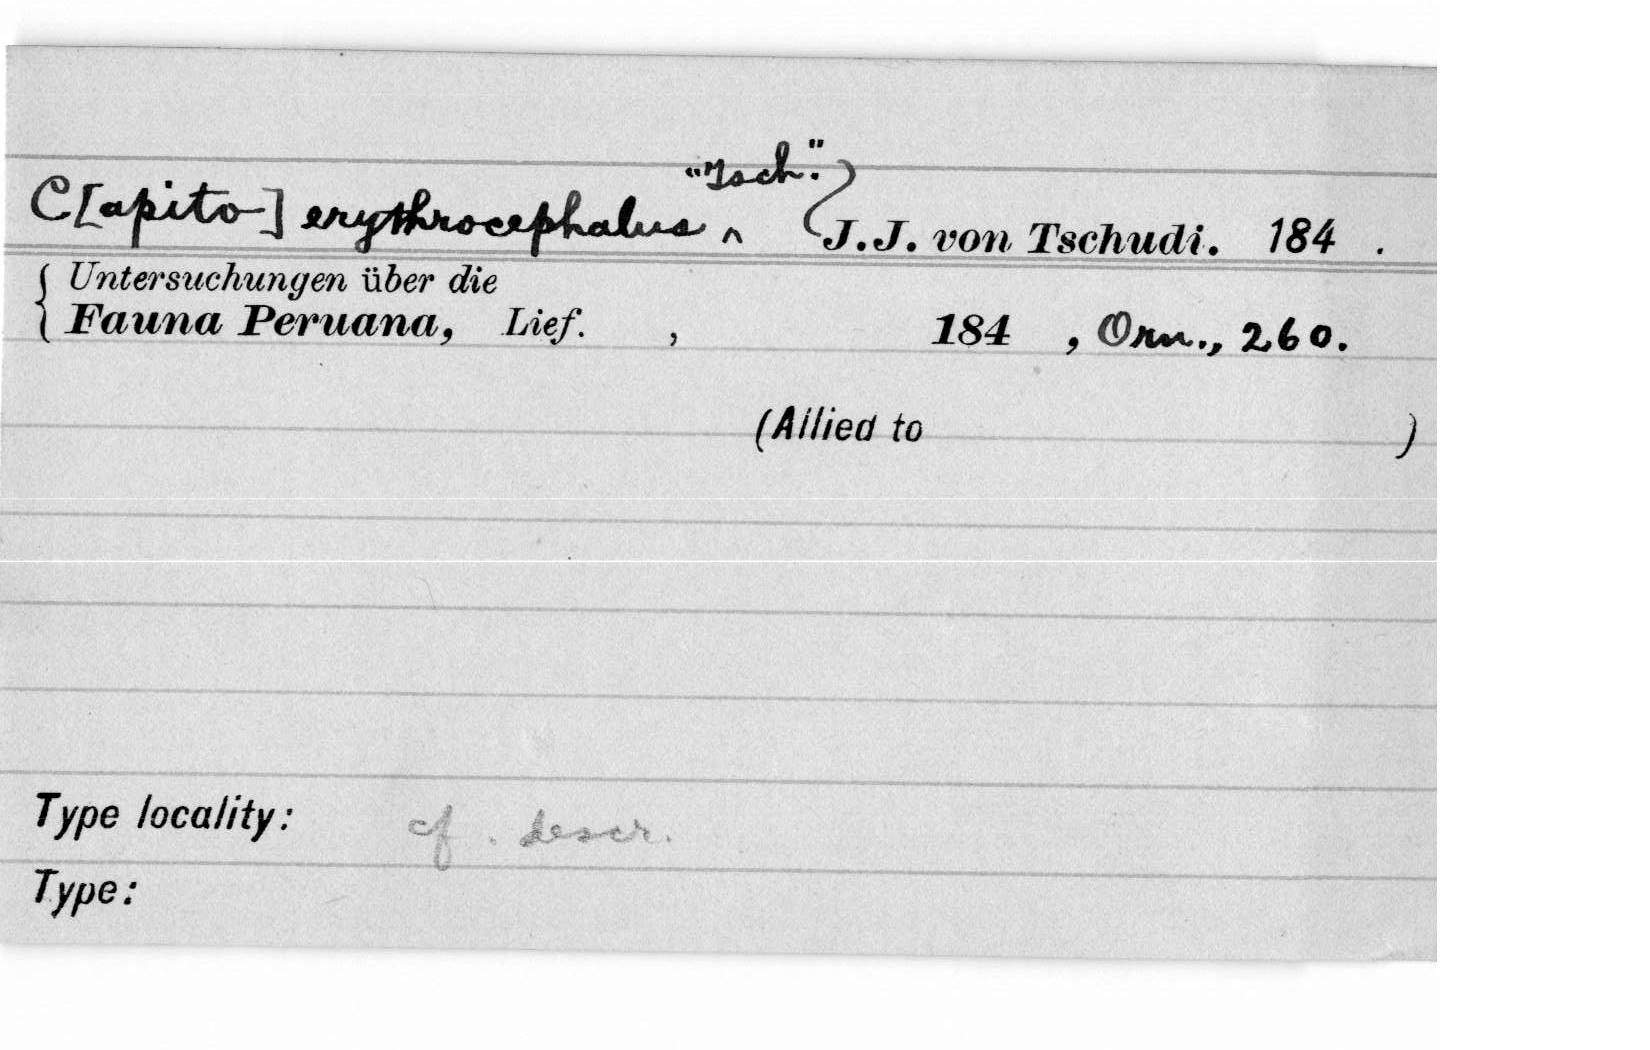 C[apito] erythrocephalus ^ "Tsch." J.J. von Tschudi. 184 .
Untersuchungen über die
Fauna Peruana, Lief. , 184 , Orn., 260.
(Allied to )
Type locality: cf. descr.
Type: